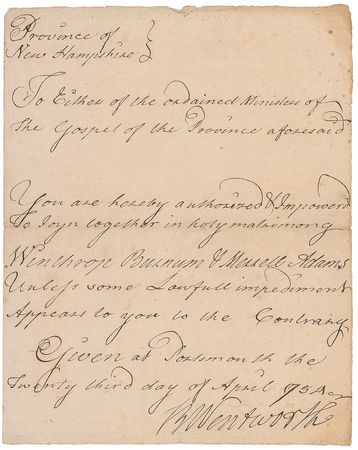 Province of
New Hampshire
To Either of the ordained Ministers of
the Gospel of the Province aforesaid
You are hereby authorized & Impowerd
To Joyn together in holy matrimony
Winthrop Burnum & Adams
Unless some Lawfull impediment
Appears to you to the Contrary
Given at Portsmouth the
Twenty third day of April 1754
BWentworth